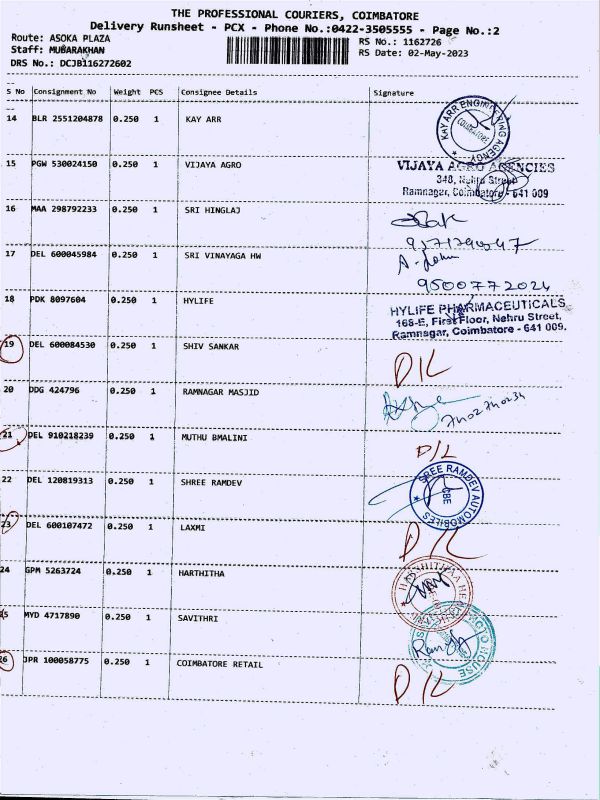 THE PROFESSIONAL COURIERS, COIMBATORE
Delivery Runsheet - PCX - Phone No.:0422-3505555 - Page No.:2
Route: ASOKA PLAZA
RS No.: 1162726
Staff: MUBARAKHAN
RS Date: 02-May-2023
DRS No.: DCJB116272602
S No Consignment No Weight PCS Consignee Details Signature
14 BLR 2551204878 0.250 1 KAY ARR
KAY ARR ENGINEERING AGENCY
COIMBATORE
15 PGW 530024150 0.250 1 VIJAYA AGRO
VIJAYA AGRO AGENCIES
348, Nehru Street
Ramnagar, Coimbatore - 641 009
16 MAA 298792233 0.250 1 SRI HINGLAJ
17 DEL 600045984 0.250 1 SRI VINAYAGA HW
9500772024
18 PDK 8097604 0.250 1 HYLIFE
HYLIFE PHARMACEUTICALS
168-E, First Floor, Nehru Street,
Ramnagar, Coimbatore - 641 009.
19 DEL 600084530 0.250 1 SHIV SANKAR
D/L
20 DDG 424796 0.250 1 RAMNAGAR MASJID
21 DEL 910218239 0.250 1 MUTHU BMALINI
D/L
22 DEL 120819313 0.250 1 SHREE RAMDEV
SREE RAMDEV AUTOMOBILES
CBE
23 DEL 600107472 0.250 1 LAXMI
D/L
24 GPM 5263724 0.250 1 HARTHITHA
25 MYD 4717890 0.250 1 SAVITHRI
26 JPR 100058775 0.250 1 COIMBATORE RETAIL
D/L